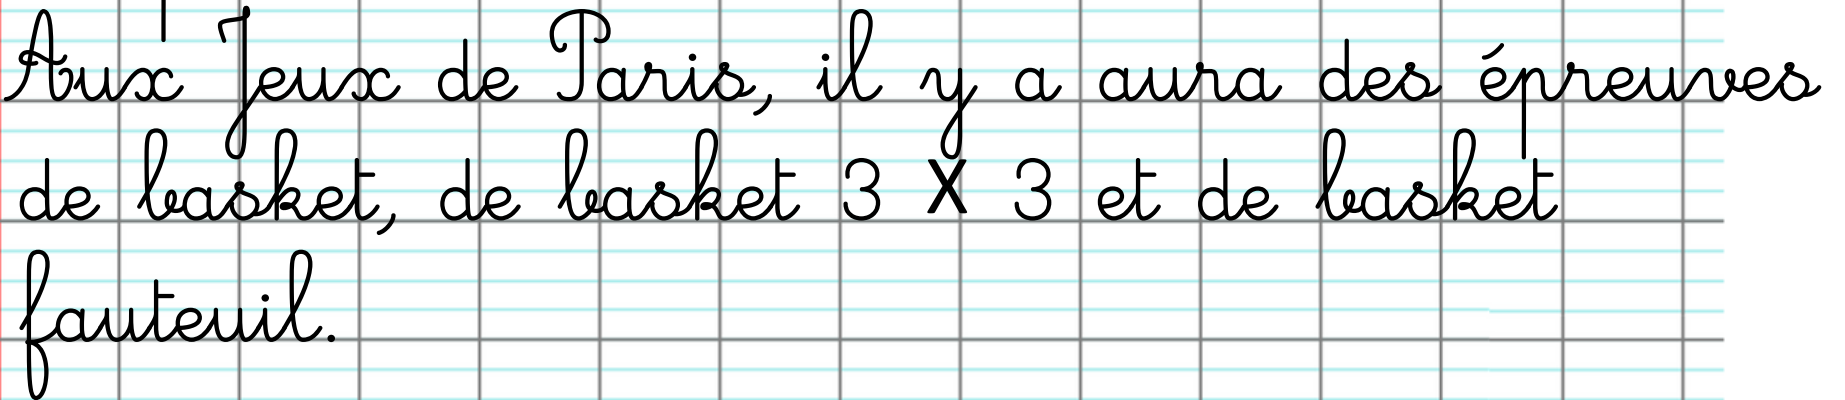 Aux Jeux de Paris, il y a aura des épreuves
de basket, de basket 3 X 3 et de basket
fauteuil.